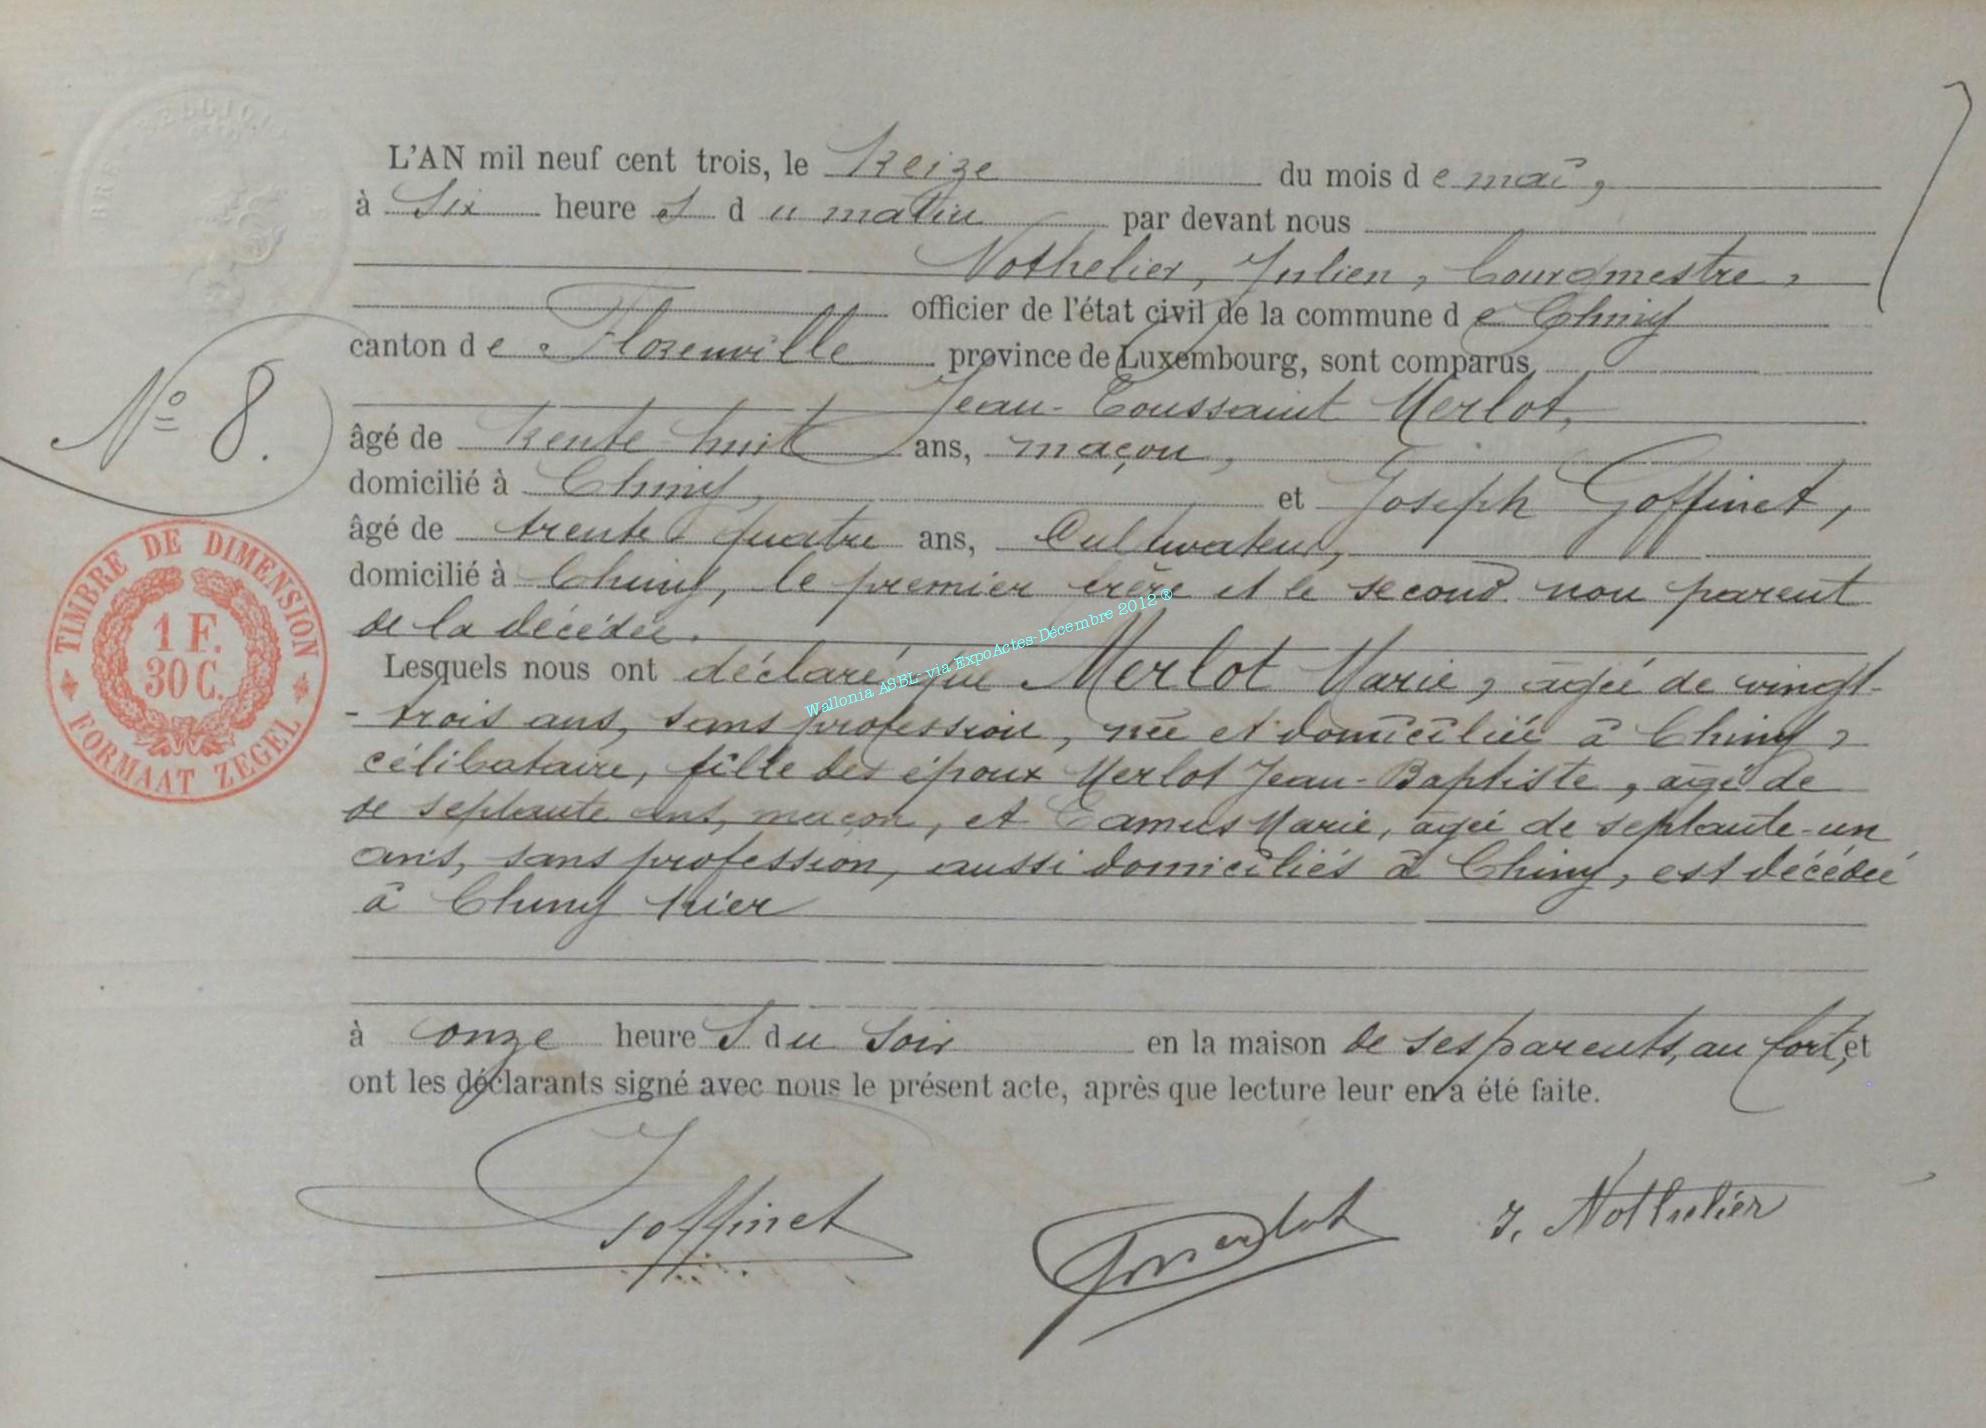 L'AN mil neuf cent trois, le treize du mois de mai,
à six heures du matin par devant nous
Nothelier, Julien, Bourgmestre,
officier de l'état civil de la commune de Chiny
canton de Florenville province de Luxembourg, sont comparus
Jean-Toussaint Merlot,
No 8.
âgé de trente-huit ans, maçon,
domicilié à Chiny, et Joseph Goffinet,
âgé de trente quatre ans, Cultivateur,
domicilié à Chiny, le premier frère et le second non parent
de la décédée.
Lesquels nous ont déclaré que Merlot Marie, agée de vingt-
-trois ans, sans profession, née et domiciliée à Chiny,
célibataire, fille des époux Merlot Jean-Baptiste, agé de
de septante ans, maçon, et Camus Marie, agée de septante-un
ans, sans profession, aussi domiciliés à Chiny, est décédée
à Chiny hier
à onze heures du soir en la maison de ses parents, au fort, et
ont les déclarants signé avec nous le présent acte, après que lecture leur en a été faite.
Goffinet
Merlot
J. Nothelier
TIMBRE DE DIMENSION
1 F.
30 C.
FORMAAT ZEGEL
Wallonia ASBL- via ExpoActes-Décembre 2012 ®